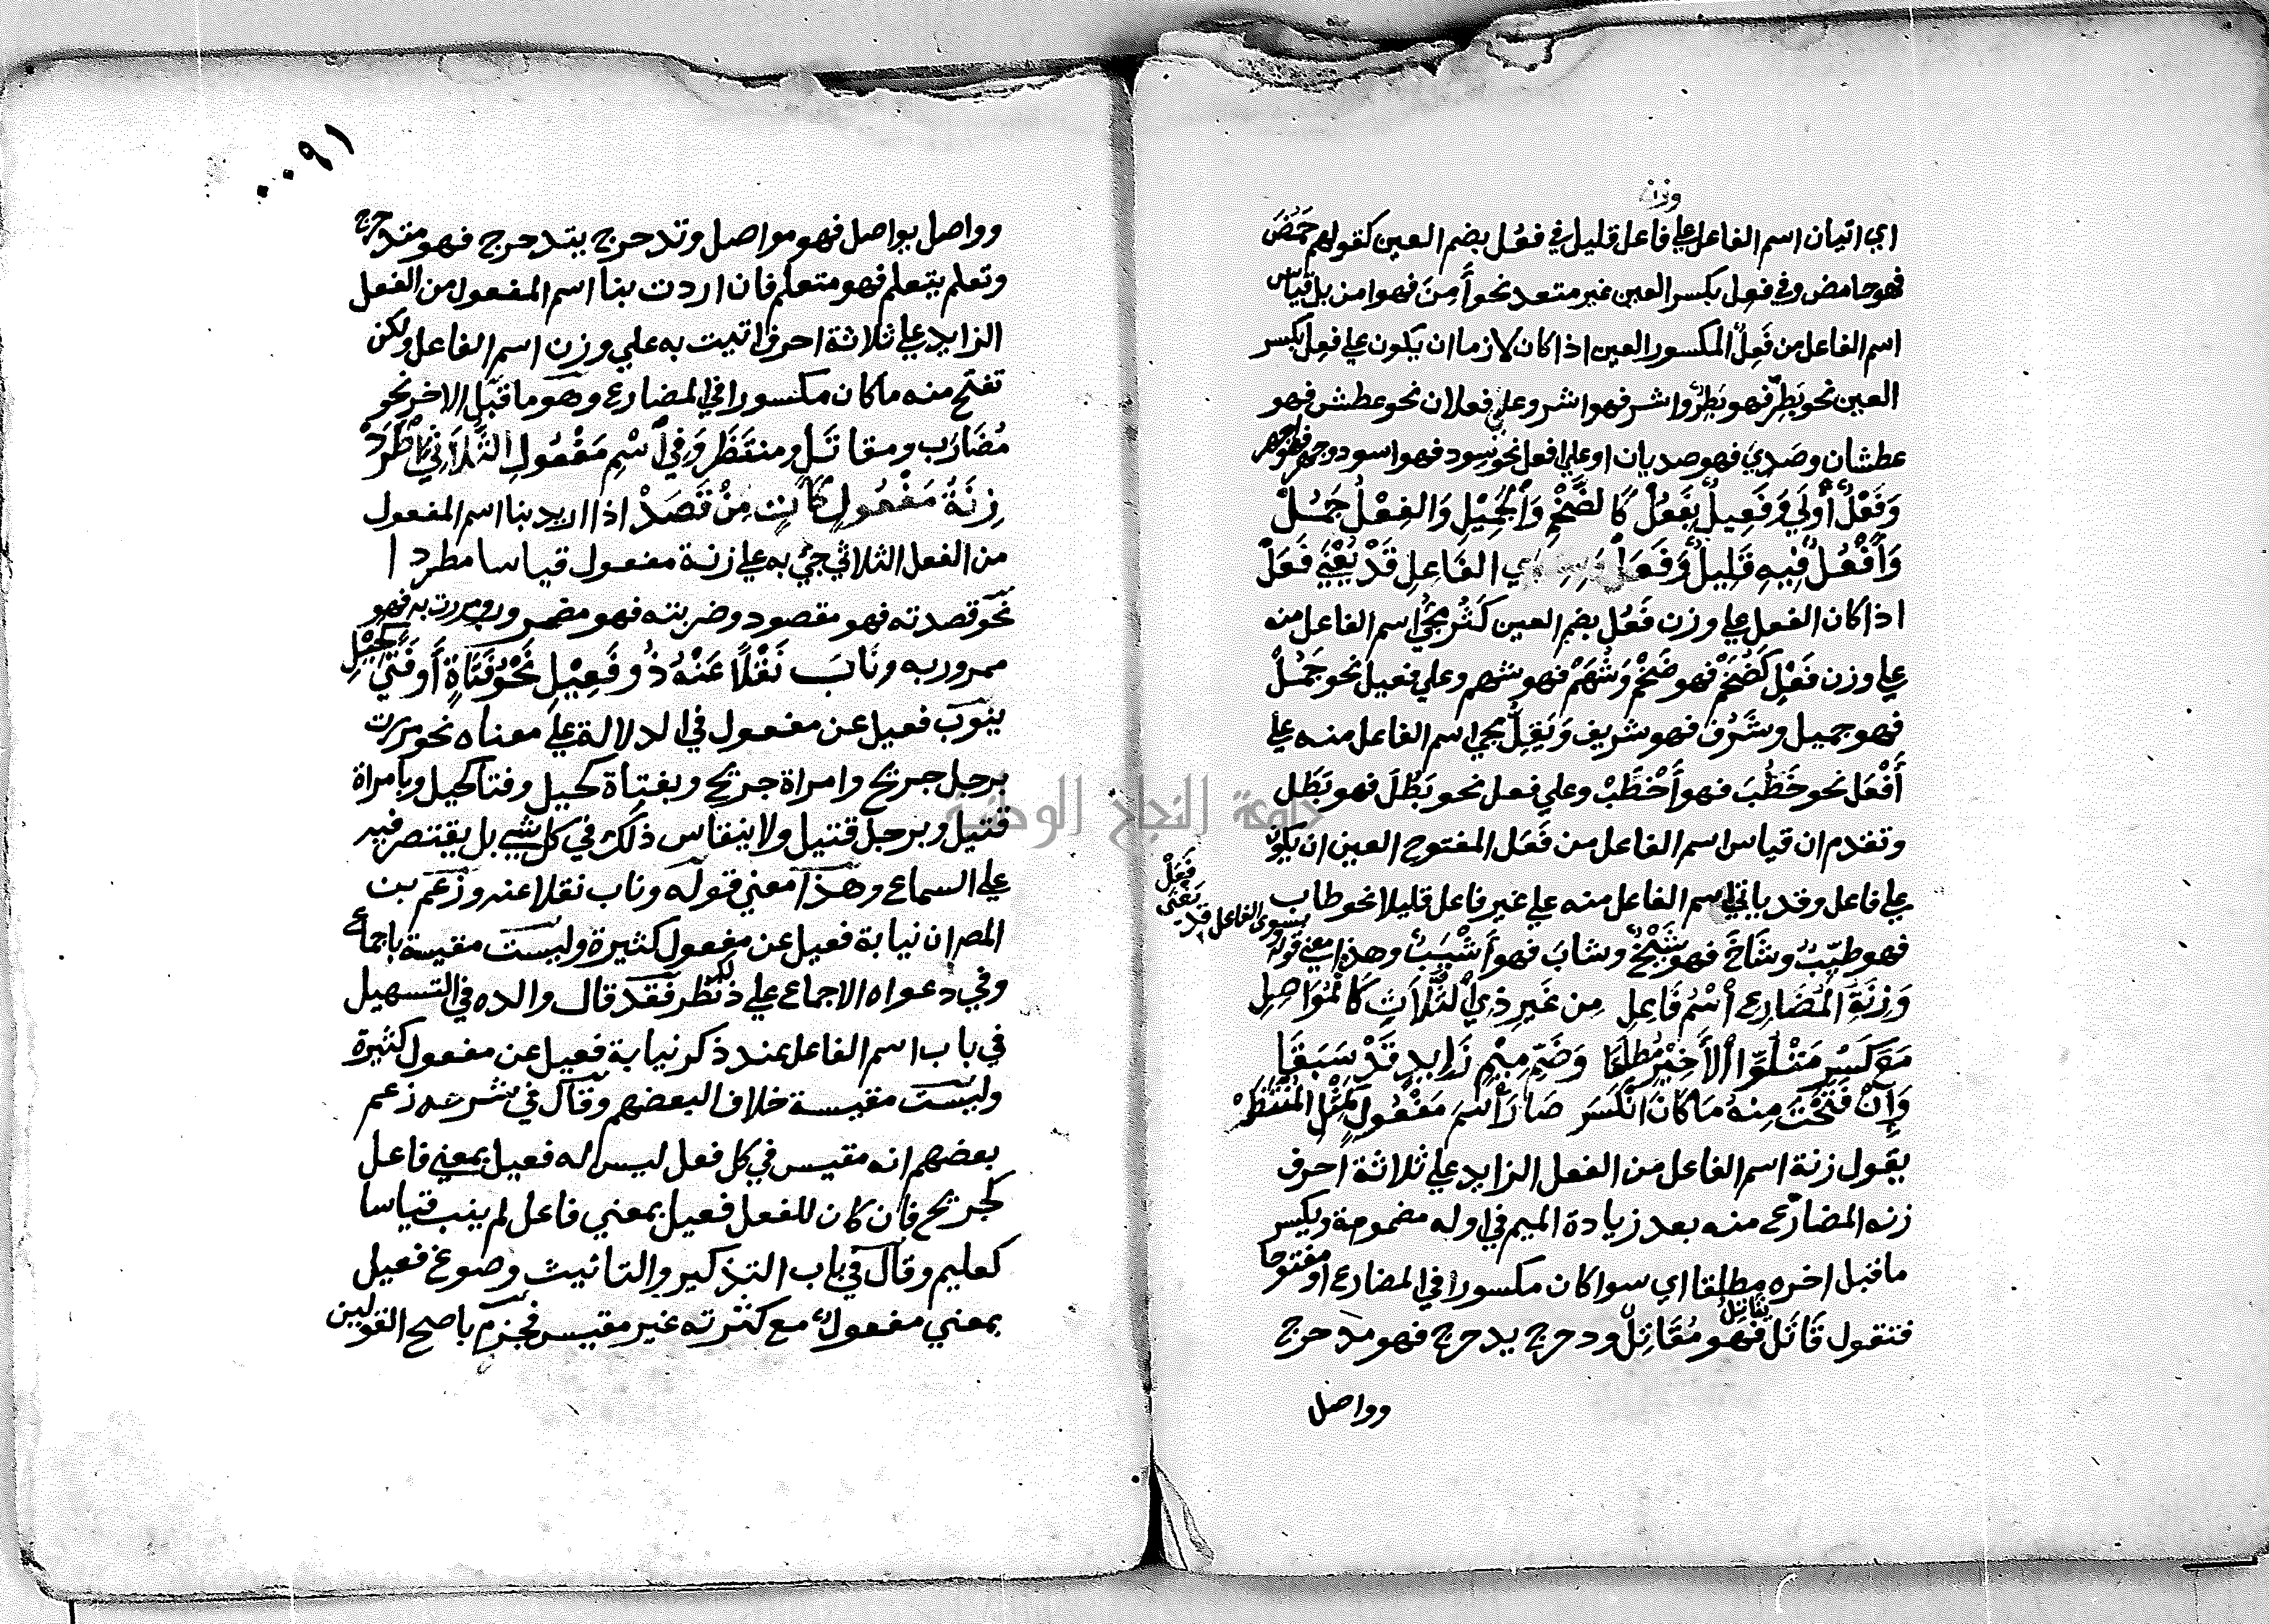 وزن
اي اتيان اسم الفاعل علي فاعل قليل في فعُل بضم العين كقولهم حَمُضَ
فهو حامض وفي فعِل بكسر العين غير متعد نحو أَمِنَ فهو امن بل قياس
اسم الفاعل من فَعِلَ المكسور العين اذا كان لازما ان يكون علي فعِل بكسر
العين نحو بَطِرَ فهو بَطِرٌ واشر فهو اشر وعلي فعلان نحو عطش فهو
عطشان وصَدِي فهو صديان او علي افعل نحو سود فهو اسود وجهر فهو اجهر
وَفَعْلٌ أَوْلَي وَفَعِيلٌ بِفَعُلْ كَالضَّخْمِ وَالْجَمِيْلِ وَالفِعْلُ جَمُلْ
وَأَفْعَلٌ فِيهِ قَلِيلٌ وَفَعَلْ وَبِسِوَي الفَاعِلِ قَدْ يَغْنَي فَعَلْ
اذا كان الفعل علي وزن فَعُل بضم العين كَثُر مجيُ اسم الفاعل منه
علي وزن فَعْلٍ كَضَخُمَ فهو ضَخْمٌ وَشَهُمَ فهو شهم وعلي فعيل نحو جَمُلَ
فهو جميل وشَرُف فهو شريف وَيَقِلُّ مجي اسم الفاعل منه علي
أَفْعَل نحو خَظُبَ فهو أَخْظَبْ وعلي فعل نحو بَطُلَ فهو بَطَل
وتقدم ان قياس اسم الفاعل من فَعَل المفتوح العين ان يكون
علي فاعل وقد ياتي اسم الفاعل منه علي غير فاعل قليلا نحو طاب
فهو طيّبٌ وشَاخَ فهو شَيْخٌ وشابَ فهو أَشْيَبُ وهذا معني قوله
بسوي الفاعل قد
يَغْنَي
فَعَلْ
وَزِنَةُ الْمُضَارِعِ أسْمُ فَاعِلِ مِن غَيرِ ذِي الثَّلاَثِ كَالْمُوَاصِلِ
مَعَ كَسْرِ مَتْلُوِّ الأَخِيْرِ مُطلقَا وَضَمِّ مِيْمٍ زَايدٍ قَدْ سَبَقَا
وَإِنْ فَتَحْتَ مِنهُ مَا كَانَ انْكَسَر صَارَ اسْمَ مَفْعُولٍ كَمِثْلِ الْمُنْتَظَرْ
يقول زنة اسم الفاعل من الفعل الزايد علي ثلاثة احرف
زنه المضارع منه بعد زيادة الميم في اوله مضمومة ويكسر
ما قبل اخره مطلقا اي سوا كان مكسورا في المضارع او مفتوحا
فتقول قَاتَل يقاتل فهو مُقَاتِل ودحرج يدحرج فهو مدحرج
وواصل
٩١
وواصل يواصل فهو مواصل وتدحرج يتدحرج فهو متدحرج
وتعلم يتعلم فهو متعلم فان اردت بنا اسم المفعول من الفعل
الزايد علي ثلاثة احرف اتيت به علي وزن اسم الفاعل ولكن
تفتح منه ما كان مكسورا في المضارع وهو ما قبل الاخر نحو
مُضَارَب ومقاتَل ومنتَظَر وَفِي أسْمِ مَفْعُولِ الثُّلاَثِي اطَّرَدْ
زِنَةُ مَفْعُولٍ كَآتٍ مِنْ قَصَدْ اذا اريد بنا اسم المفعول
من الفعل الثلاثي جيُ به علي زنة مفعول قياسا مطردا
نحو قصدته فهو مقصود وضربته فهو مضروب ومررت به فهو
ممرور به ونَابَ نَقْلاً عَنْهُ ذُو فَعِيْلِ نَحْوُ فَتَاةٍ أَو فَتًي كَحِيْلِ
ينوب فعيل عن مفعول في الدلالة علي معناه نحو مررت
برجل جريح وامراة جريح وبفتاة كحيل وفتا كحيل وبامراة
قتيل وبرجل قتيل ولا ينقاس ذلك في كل شي بل يقتصر فيه
علي السماع وهذا معني قوله وناب نقلا عنه وزعم بن
المصر ان نيابة فعيل عن مفعول كثيرة وليست مقيسة باجماع
وفي دعواه الاجماع علي ذلك نظر فقد قال والده في التسهيل
في باب اسم الفاعل عند ذكر نيابة فعيل عن مفعول كثيرة
وليست مقيسة خلاف البعضهم وقال في شرحه زعم
بعضهم انه مقيس في كل فعل ليس له فعيل بمعني فاعل
كجريح فان كان للفعل فعيل بمعني فاعل لم ينب قياسا
كعليم وقال في باب التذكير والتانيث وصوغ فعيل
بمعني مفعول مع كثرته غير مقيس فجزم باصح القولين
جامعة النجاح الوطنية